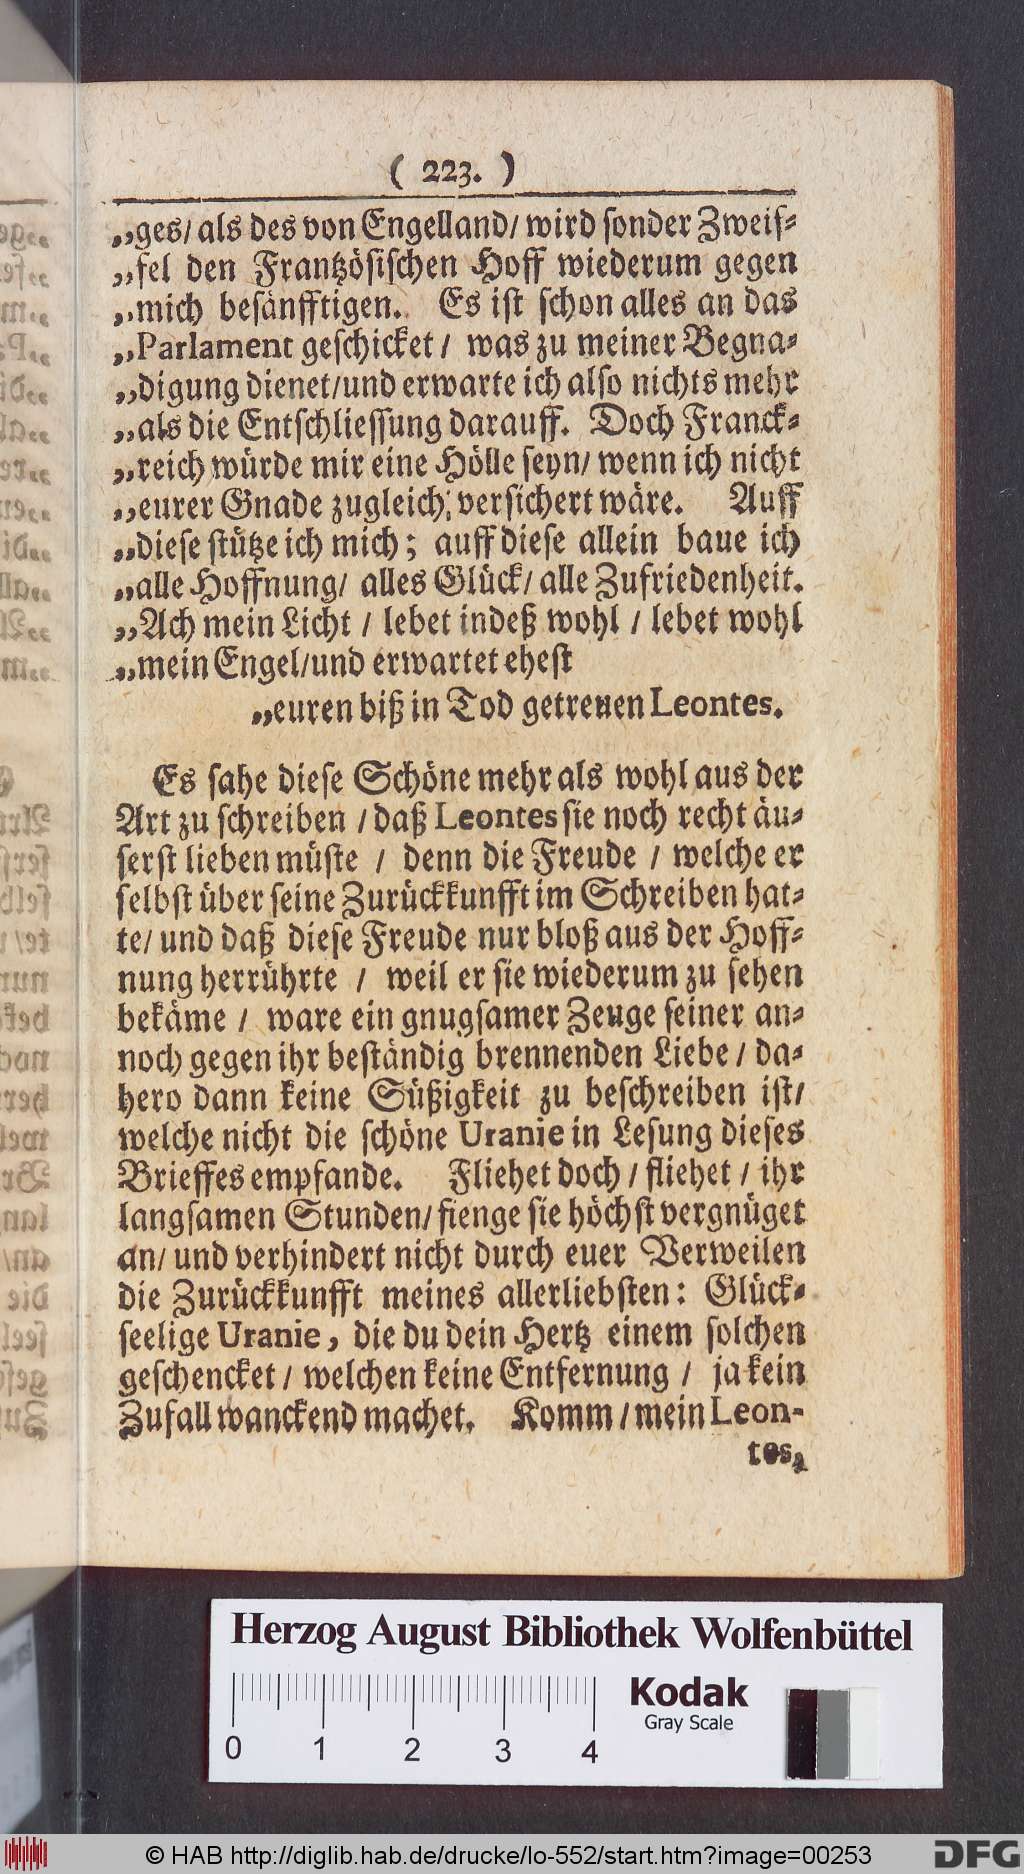 ( 223. )
„ges/ als des von Engelland/ wird sonder Zweif-
„fel den Frantzösischen Hoff wiederum gegen
„mich besänfftigen. Es ist schon alles an das
„Parlament geschicket / was zu meiner Begna-
„digung dienet/und erwarte ich also nichts mehr
„als die Entschliessung darauff. Doch Franck-
„reich würde mir eine Hölle seyn/ wenn ich nicht
„eurer Gnade zugleich versichert wäre. Auff
„diese stütze ich mich; auff diese allein baue ich
„alle Hoffnung/ alles Glück/ alle Zufriedenheit.
„Ach mein Licht / lebet indeß wohl / lebet wohl
„mein Engel/und erwartet ehest
„euren biß in Tod getreuen Leontes.
Es sahe diese Schöne mehr als wohl aus der
Art zu schreiben / daß Leontes sie noch recht äu-
serst lieben müste / denn die Freude / welche er
selbst über seine Zurückkunfft im Schreiben hat-
te/ und daß diese Freude nur bloß aus der Hoff-
nung herrührte / weil er sie wiederum zu sehen
bekäme / ware ein gnugsamer Zeuge seiner an-
noch gegen ihr beständig brennenden Liebe / da-
hero dann keine Süßigkeit zu beschreiben ist/
welche nicht die schöne Uranie in Lesung dieses
Brieffes empfande. Fliehet doch / fliehet / ihr
langsamen Stunden/ fienge sie höchst vergnüget
an/ und verhindert nicht durch euer Verweilen
die Zurückkunfft meines allerliebsten: Glück-
seelige Uranie, die du dein Hertz einem solchen
geschencket / welchen keine Entfernung / ja kein
Zufall wanckend machet. Komm / mein Leon-
tes,
Herzog August Bibliothek Wolfenbüttel
Kodak
Gray Scale
0 1 2 3 4
© HAB http://diglib.hab.de/drucke/lo-552/start.htm?image=00253
DFG